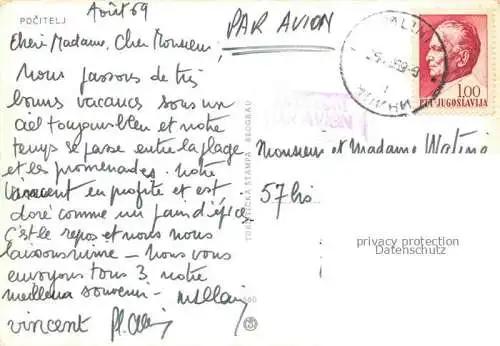 Août 69
POČITELJ
PAR AVION
Chère Madame, Cher Monsieur,
Nous passons de très
bonnes vacances sous un
ciel toujours bleu et notre
temps se passe entre la plage
et les promenades. Notre
Vincent en profite et est
doré comme un pain d'épice,
c'est le repos et nous nous
laissons vivre - Nous vous
envoyons tous 3 notre
meilleur souvenir -
vincent
TURISTIČKA ŠTAMPA - BEOGRAD
PAR AVION
1.00
JUGOSLAVIJA
Monsieur et Madame
57 bis
privacy protection
Datenschutz